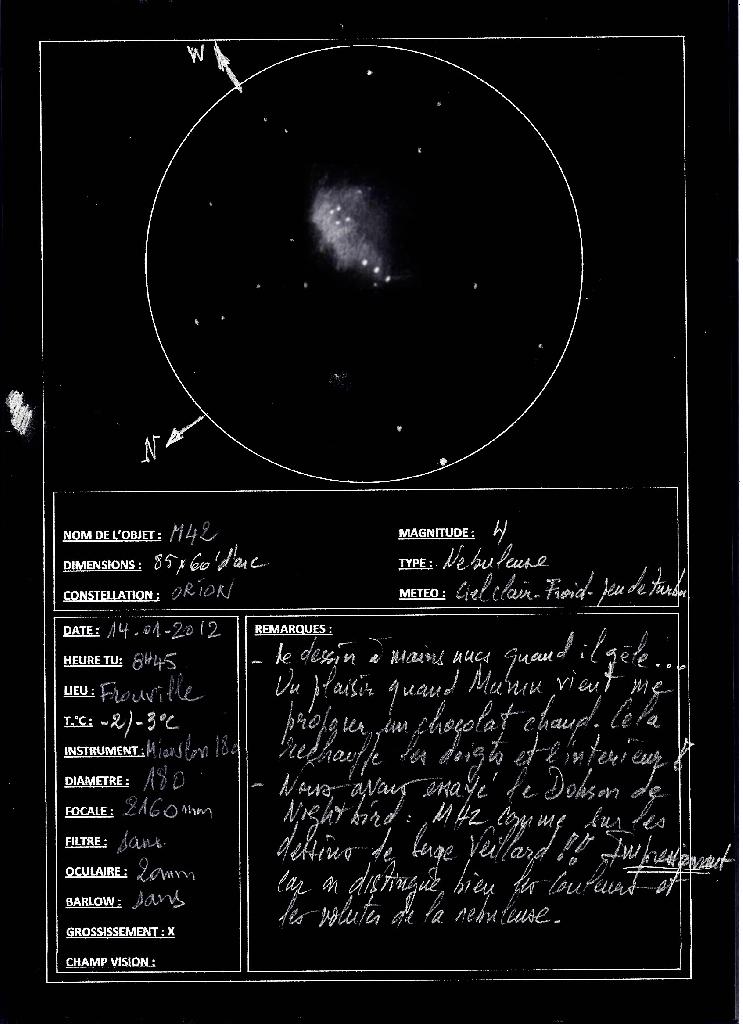 W
N
NOM DE L'OBJET : M42
MAGNITUDE : 4
DIMENSIONS : 85x60' d'arc
TYPE : Nebuleuse
CONSTELLATION : ORION
METEO : Ciel clair - Froid - peu de
DATE : 14-01-2012
HEURE TU:
LIEU : Frouville
T.°C : -2/-3°C
INSTRUMENT : 180
DIAMETRE : 180
FOCALE : 2160mm
FILTRE : sans
OCULAIRE : 20mm
BARLOW : sans
GROSSISSEMENT : X
CHAMP VISION :
REMARQUES :
- Le dessin à mains nues quand il gèle...
Un plaisir quand vient me
proposer un chocolat chaud. Cela
rechauffe les doigts et l'interieur !
- Nous avons essayé le Dobson de
Nightbird : M42 comme sur les
dessins de Serge Veillard !! Impressionnant
car on distingue bien les couleurs et
les volutes de la nebuleuse.